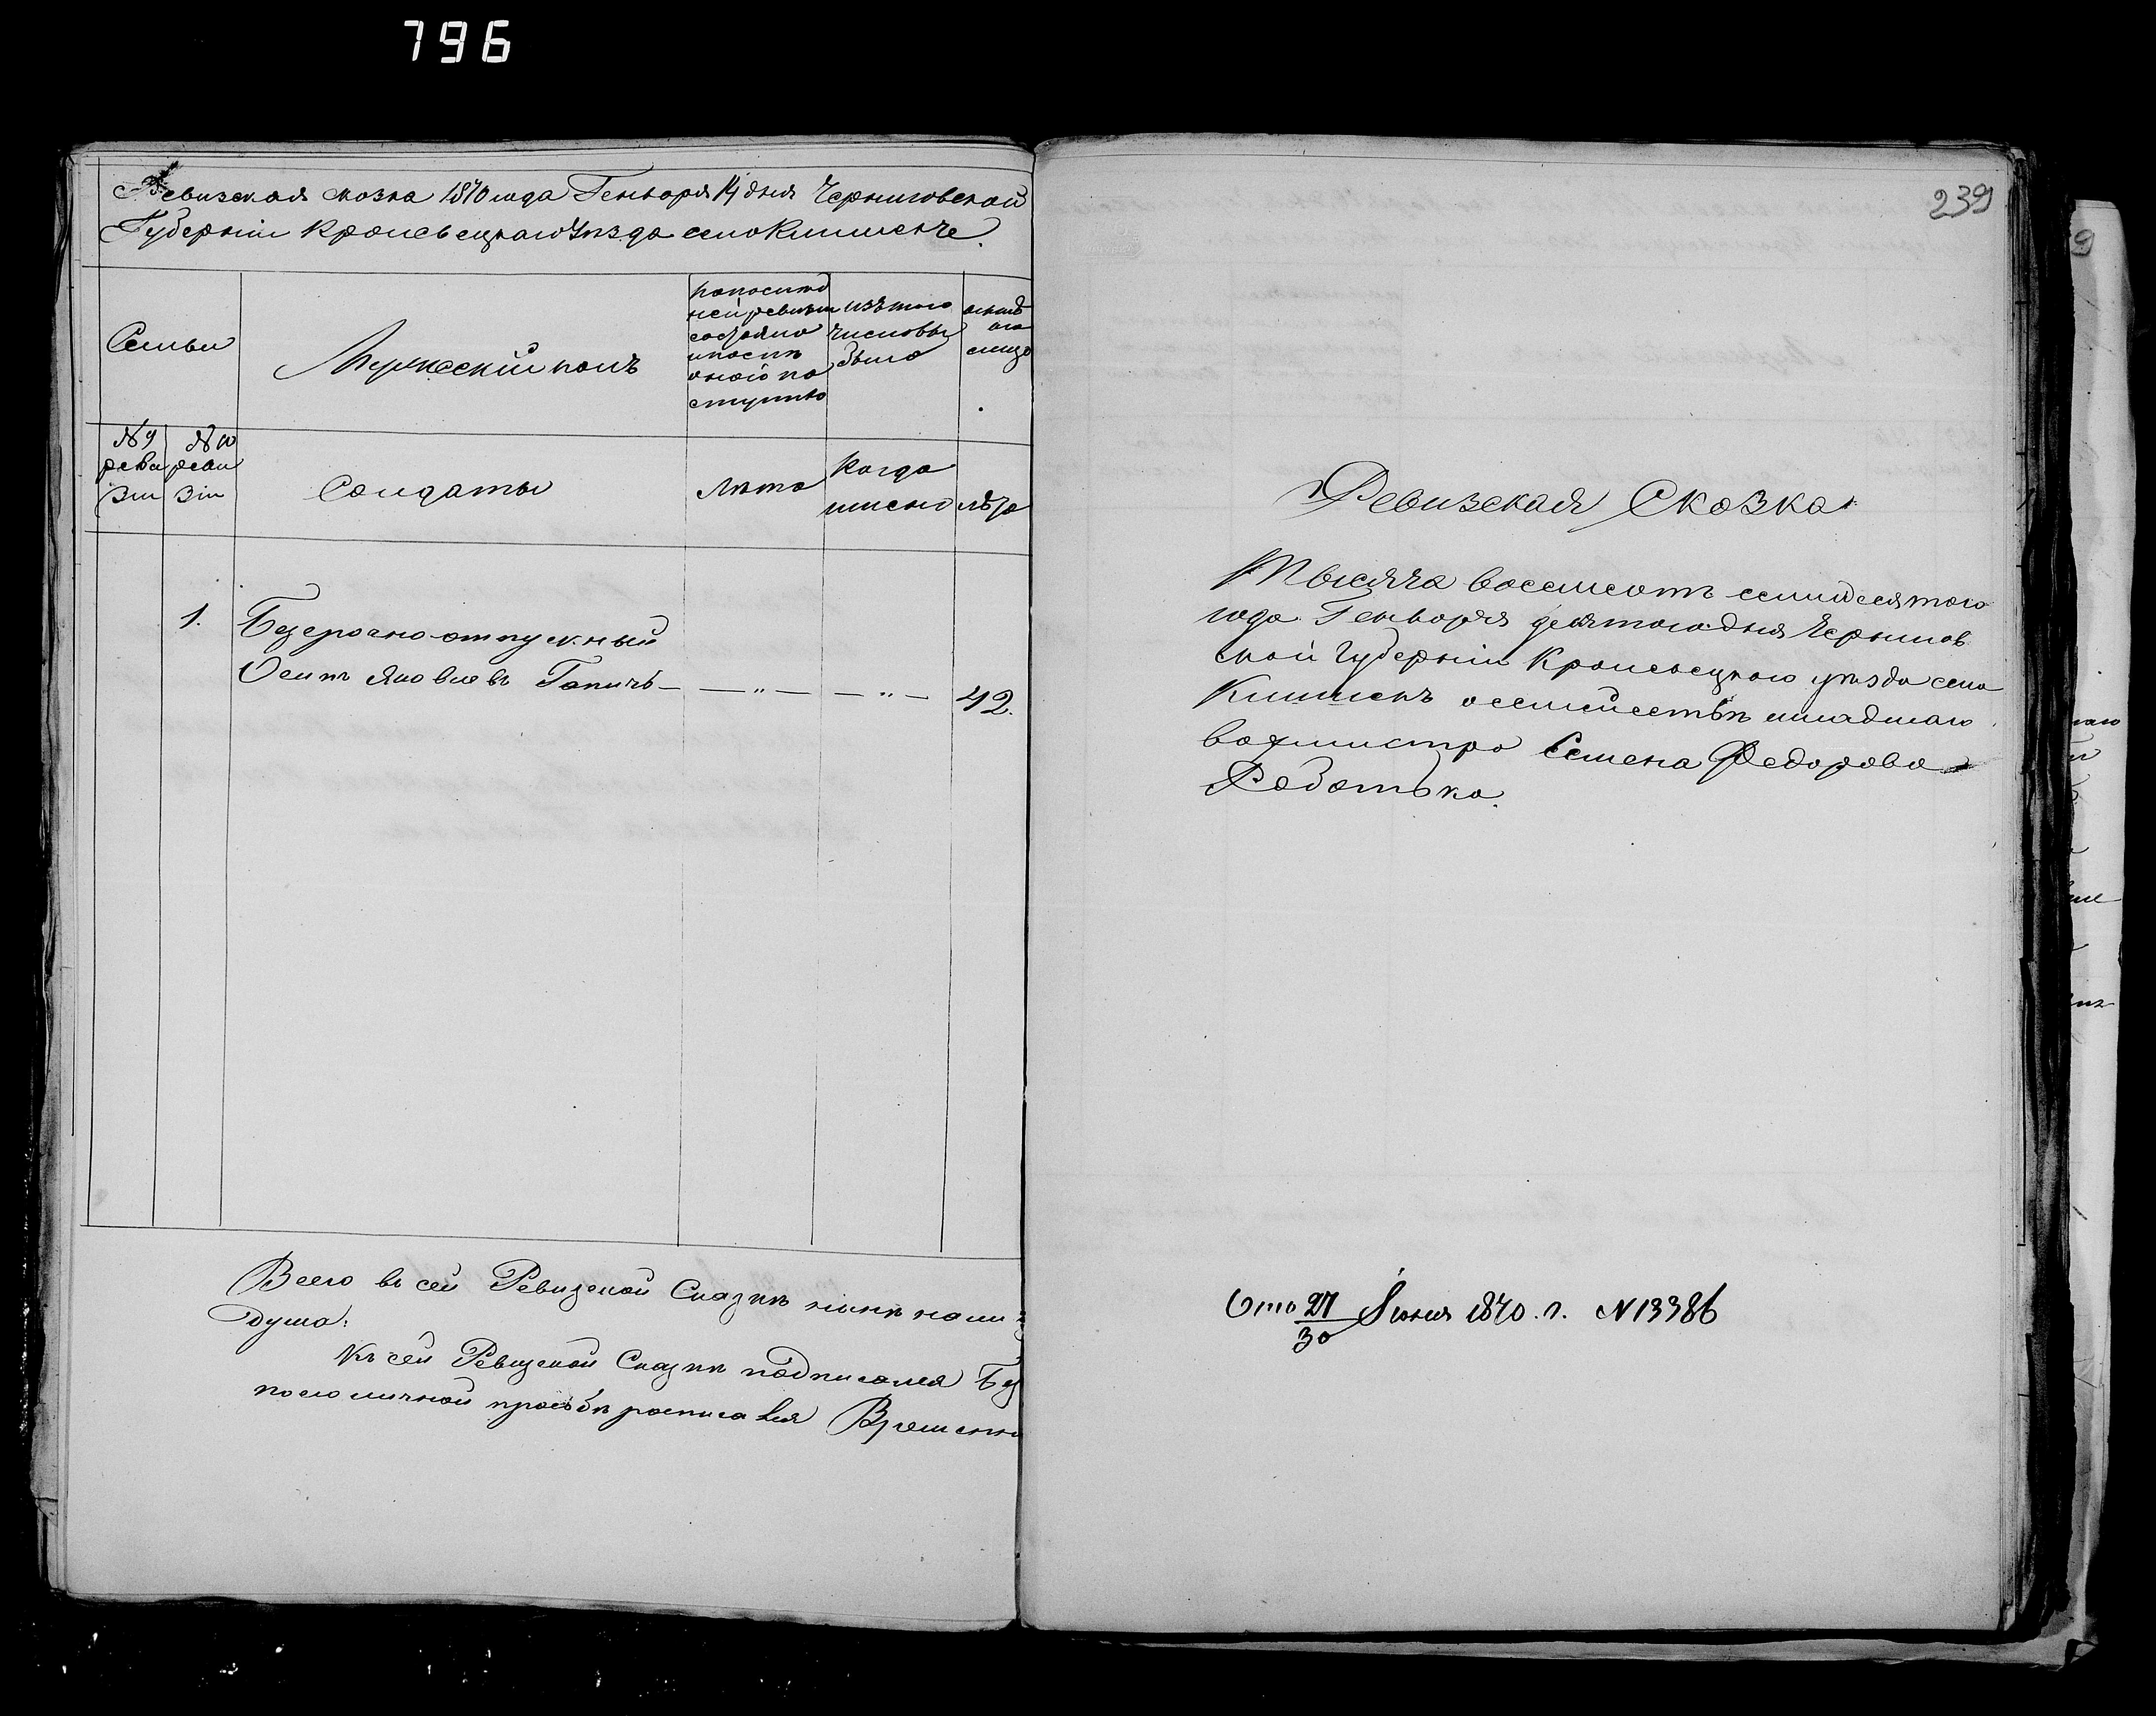 796
Ревизская сказка 1870 года Генваря 14 дня Черниговской
Губерніи Кролевецкаго Уѣзда село Клишенче.
Семьи
Мужескій полъ
По послѣд
ней ревизіи
состояло
и послѣ
оной по
ступило
изъ того
числа вы
было
№ 9
реви
зіи
№ 10
реви
зіи
Солдаты
Лѣта
Когда
именно
лѣта
1.
Безсрочно-отпускный
Осипъ Яковлевъ Гапичъ — — „ — — „ — 42.
Всего въ сей Ревизской Сказкѣ нынѣ нали
душа.
Къ сей Ревизской Сказкѣ подписался Без
по его личной прозьбѣ росписався Временно
239
Ревизская Сказка
Тысяча восемсотъ семидесятого
года Генваря десятого дня Чернигов
ской Губерніи Кролевецкаго уѣзда села
Клишекъ о семействѣ младшаго
вахмистра Семена Федорова
Работька.
Отъ 27/30 Іюня 1870. г. N 13386